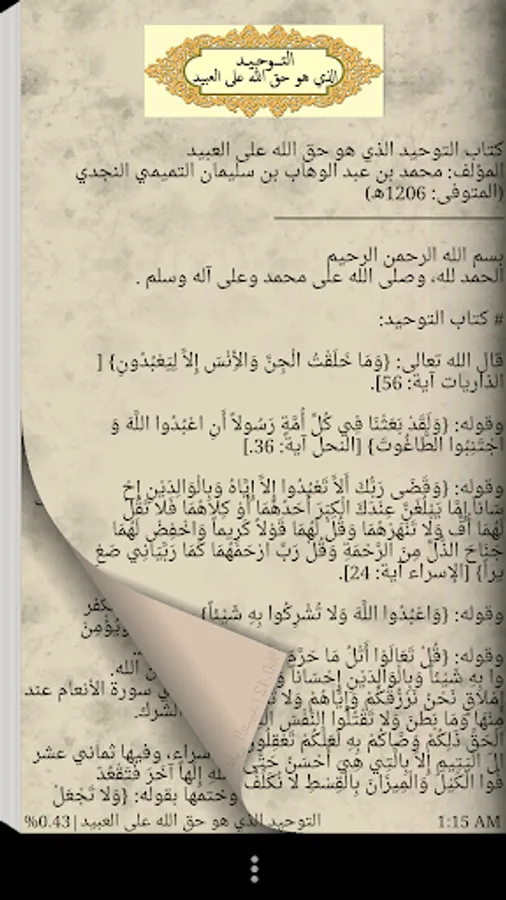 التوحيد
الذي هو حق الله على العبيد
كتاب التوحيد الذي هو حق الله على العبيد
المؤلف: محمد بن عبد الوهاب بن سليمان التميمي النجدي
(المتوفى: 1206هـ)
بسم الله الرحمن الرحيم
الحمد لله، وصلى الله على محمد وعلى آله وسلم .
# كتاب التوحيد:
قال الله تعالى: {وَمَا خَلَقْتُ الْجِنَّ وَالأِنْسَ إِلاَّ لِيَعْبُدُونِ} [
الذاريات آية: 56].
وقوله: {وَلَقَدْ بَعَثْنَا فِي كُلِّ أُمَّةٍ رَسُولاً أَنِ اعْبُدُوا اللَّهَ وَ
اجْتَنِبُوا الطَّاغُوتَ} [النحل آية: 36.]
وقوله: {وَقَضَى رَبُّكَ أَلاَّ تَعْبُدُوا إِلاَّ إِيَّاهُ وَبِالْوَالِدَيْنِ إِحْ
سَاناً إِمَّا يَبْلُغَنَّ عِنْدَكَ الْكِبَرَ أَحَدُهُمَا أَوْ كِلاهُمَا فَلا تَقُلْ
لَهُمَا أُفٍّ وَلا تَنْهَرْهُمَا وَقُلْ لَهُمَا قَوْلاً كَرِيماً وَاخْفِضْ لَهُمَا
جَنَاحَ الذُّلِّ مِنَ الرَّحْمَةِ وَقُلْ رَبِّ ارْحَمْهُمَا كَمَا رَبَّيَانِي صَغِ
يراً} [الإسراء آية: 24].
وقوله: {وَاعْبُدُوا اللَّهَ وَلا تُشْرِكُوا بِهِ شَيْئاً}
وقوله: {قُلْ تَعَالَوْا أَتْلُ مَا حَرَّمَ
وا بِهِ شَيْئاً وَبِالْوَالِدَيْنِ إِحْسَاناً وَ
إِمْلاقٍ نَحْنُ نَرْزُقُكُمْ وَإِيَّاهُمْ وَلا
مِنْهَا وَمَا بَطَنَ وَلا تَقْتُلُوا النَّفْسَ
الْحَقِّ ذَلِكُمْ وَصَّاكُمْ بِهِ لَعَلَّكُمْ تَعْقِلُون
الَ الْيَتِيمِ إِلاَّ بِالَّتِي هِيَ أَحْسَنُ حَتَّى
فُوا الْكَيْلَ وَالْمِيزَانَ بِالْقِسْطِ لا نُكَلِّفُ
الله.
سورة الأنعام عند
الشرك.
وفيها ثماني عشر
إِلَهاً آخَرَ فَتَقْعُدَ
وختمها بقوله: {وَلا تَجْعَلْ
1:15 AM
التوحيد الذي هو حق الله على العبيد|%0.43